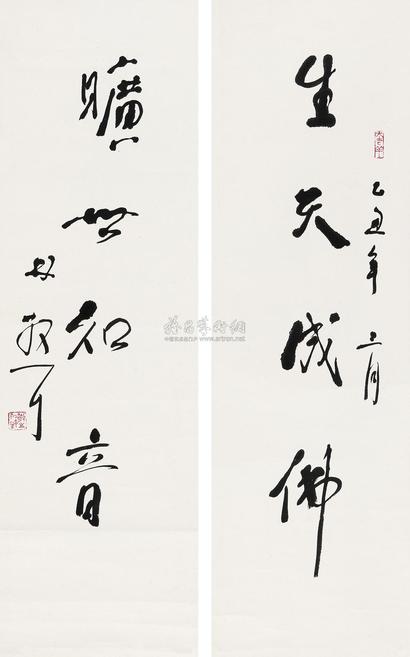 生天成佛
乙丑年 月
曠世知音
林散耳
雅昌藝術網
www.artron.net